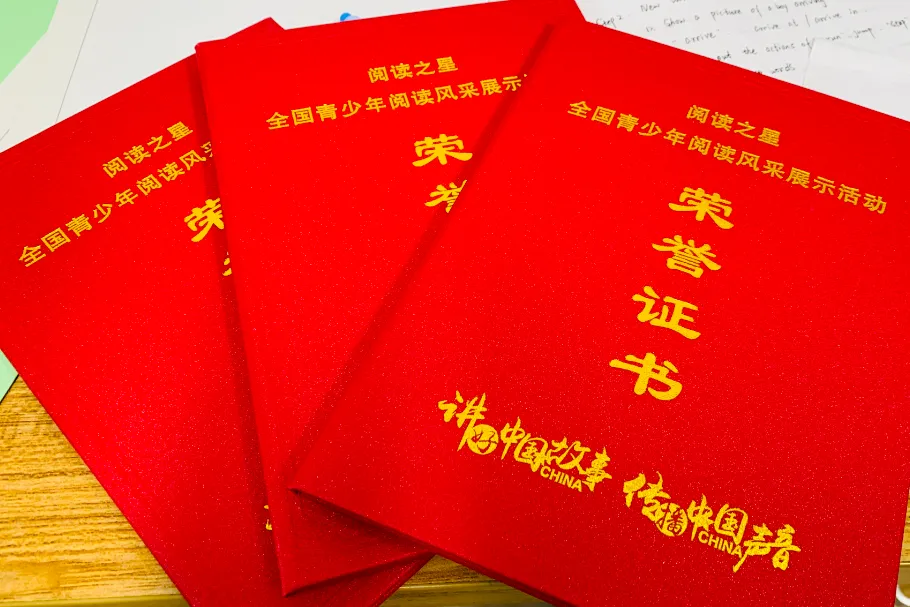 阅读之星
全国青少年阅读风采
荣
阅读之星
全国青少年阅读风采展示
荣
誉
阅读之星
全国青少年阅读风采展示活动
荣
誉
证
书
讲好中国故事
CHINA
传播中国声音
CHINA
Step 2 New
Show a picture of a boy arriving
"arrive" arrive at / arrive in
out the actions of run